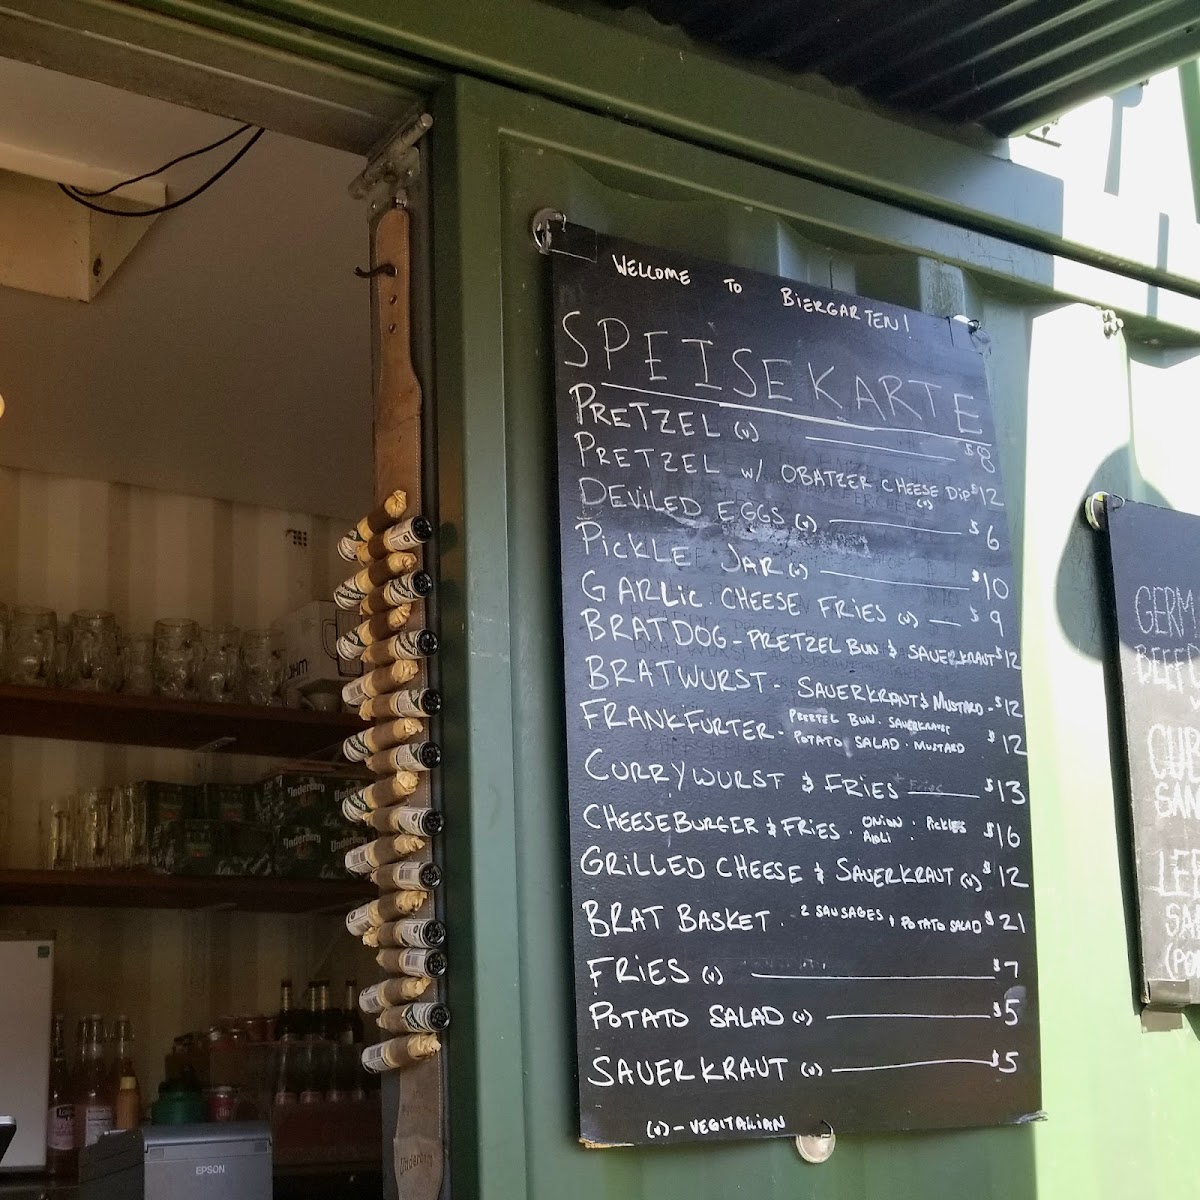 WELCOME TO BIERGARTEN!
SPEISEKARTE
PRETZEL (v) $8
PRETZEL w/ OBATZER CHEESE DIP $12
(v)
DEVILED EGGS (v) $6
PICKLE JAR (v) $10
GARLIC CHEESE FRIES (v) $9
BRATDOG - PRETZEL BUN & SAUERKRAUT $12
BRATWURST - SAUERKRAUT & MUSTARD - $12
FRANKFURTER - PRETZEL BUN · SAUERKRAUT
POTATO SALAD · MUSTARD $12
CURRYWURST & FRIES $13
CHEESEBURGER & FRIES · ONION · PICKLES $16
AIOLI
GRILLED CHEESE & SAUERKRAUT (v) $12
BRAT BASKET · 2 SAUSAGES & POTATO SALAD $21
FRIES (v) $7
POTATO SALAD (v) $5
SAUERKRAUT (v) $5
(v) - VEGITALIAN
GERM
BEEF
Underberg
Underberg
Underberg
EPSON